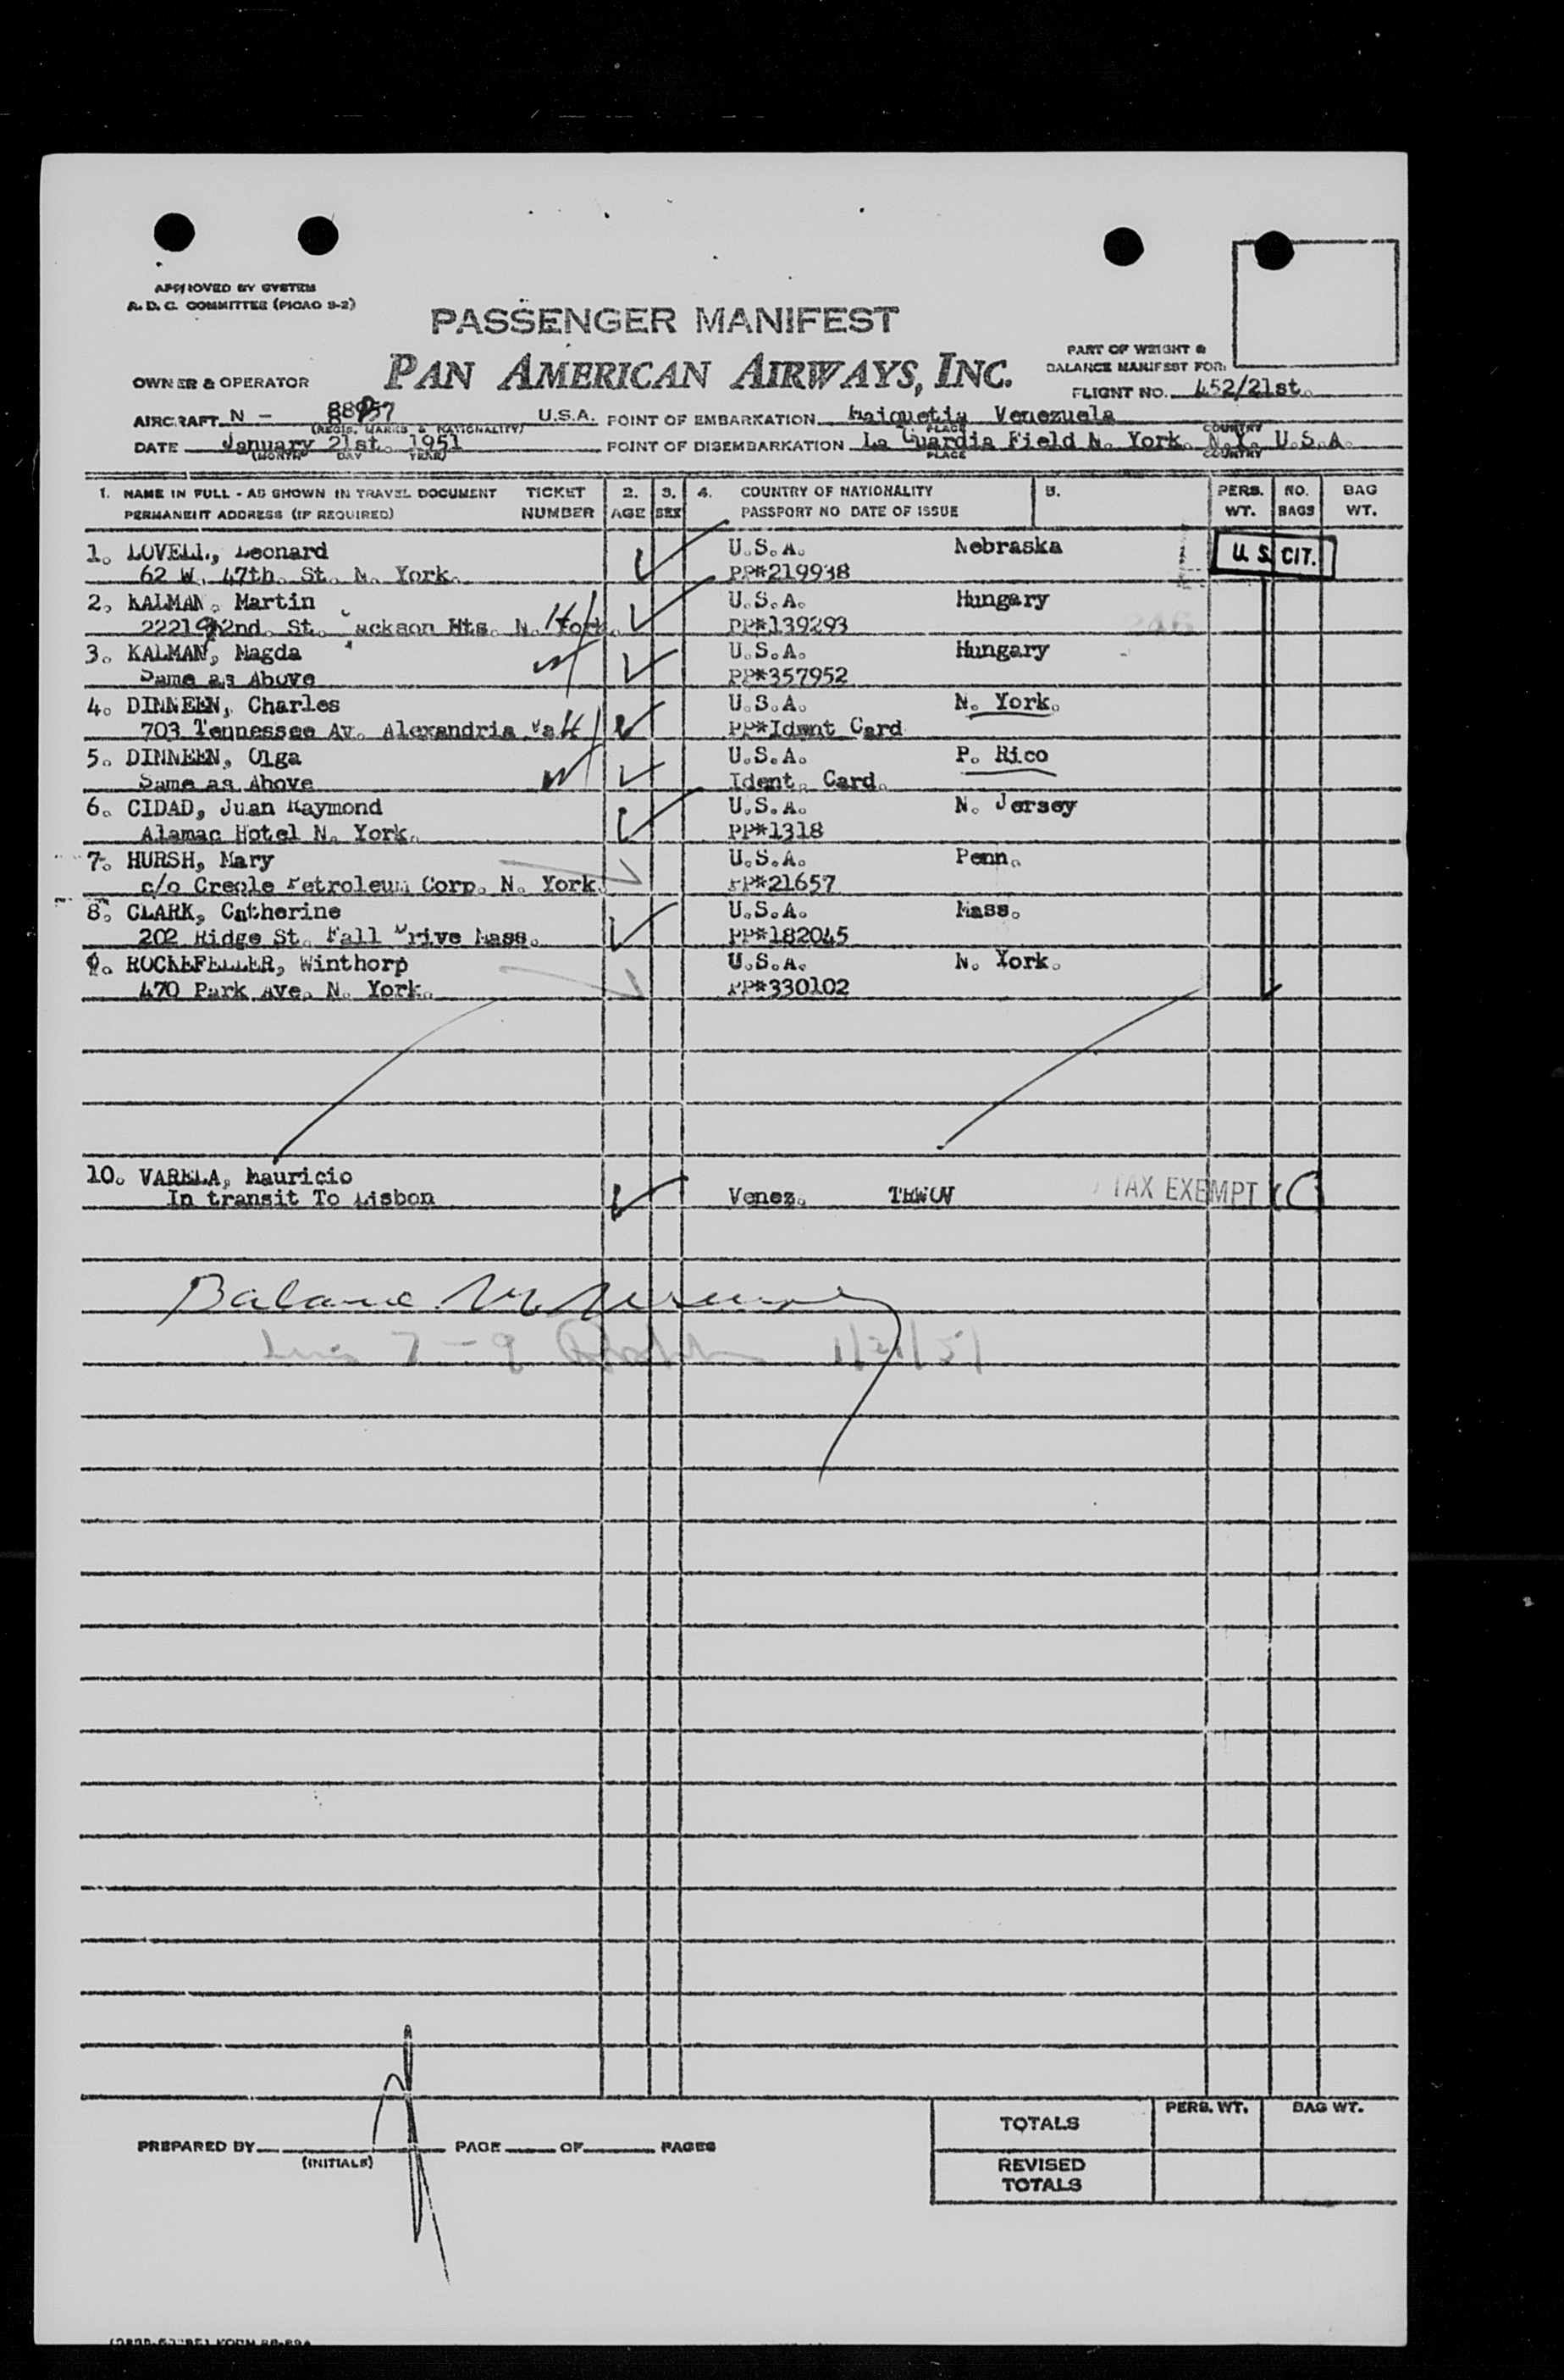 APPROVED BY SYSTEM
A. D. C. COMMITTEE (PICAO S-2)
PASSENGER MANIFEST
PAN AMERICAN AIRWAYS, INC.
PART OF WEIGHT &
BALANCE MANIFEST FOR:
OWNER & OPERATOR
FLIGHT NO. 452/21st.
AIRCRAFT N - U.S.A. POINT OF EMBARKATION Maiquetia Venezuela
(REGIS. MARKS & NATIONALITY) PLACE COUNTRY
DATE January 21st. 1951 POINT OF DISEMBARKATION La Guardia Field N. York. N.Y. U.S.A.
(MONTH) DAY YEAR) PLACE COUNTRY
1. NAME IN FULL - AS SHOWN IN TRAVEL DOCUMENT TICKET 2. 3. 4. COUNTRY OF NATIONALITY 5. PERS. NO. BAG
PERMANENT ADDRESS (IF REQUIRED) NUMBER AGE SEX PASSPORT NO DATE OF ISSUE WT. BAGS WT.
1. LOVELL, Leonard U.S.A. Nebraska U.S. CIT.
62 W. 47th. St. N. York. PP*219938
2, KALMAN, Martin U.S.A. Hungary
2221 92nd. St. Jackson Hts. N. York. PP*139293
3. KALMAN, Magda U.S.A. Hungary
Same as Above PP*357952
4. DINNEEN, Charles U.S.A. N. York.
703 Tennessee Av. Alexandria Va PP*Ident Card
5. DINNEEN, Olga U.S.A. P. Rico
Same as Above Ident. Card.
6. CIDAD, Juan Raymond U.S.A. N. Jersey
Alamac Hotel N. York. PP*1318
7. HURSH, Mary U.S.A. Penn.
c/o Creole Petroleum Corp. N. York. PP*21657
8. CLARK, Catherine U.S.A. Mass.
202 Ridge St. Fall Drive Mass. PP*182045
9. ROCKEFELLER, Winthorp U.S.A. N. York.
470 Park Ave. N. York. PP*330102
10. VARELA, Mauricio
In transit To Lisbon Venez. TRWOV TAX EXEMPT
Balance
7 - 9 1/21/51
PREPARED BY PAGE OF PAGES
(INITIALS)
TOTALS PERS. WT. BAG WT.
REVISED
TOTALS